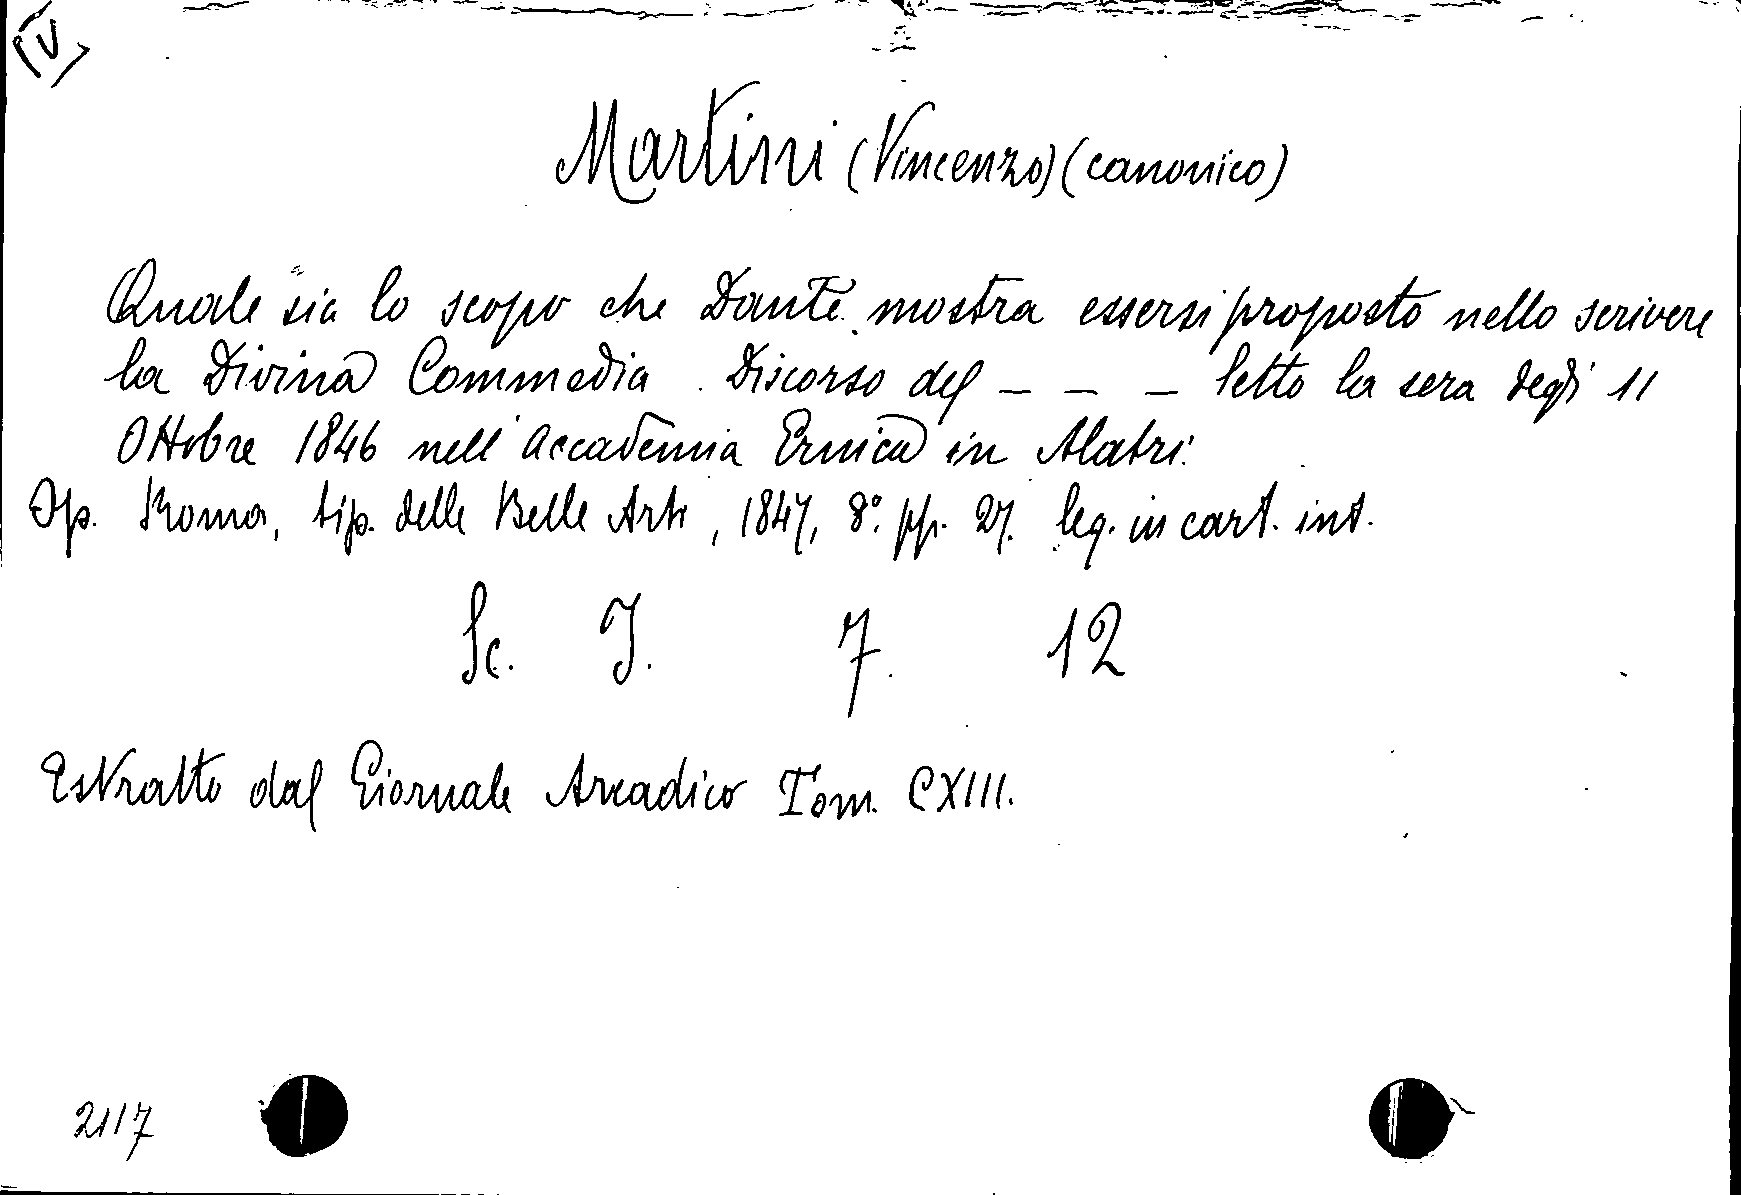 IV
Martini (Vincenzo) (canonico)
Quale sia lo scopo che Dante mostra essersi proposto nello scrivere
la Divina Commedia. Discorso del _ _ _ letto la sera degli 11
Ottobre 1846 nell'Accademia Ernica in Alatri.
Op. Roma, tip. delle Belle Arti, 1847, 8º. pp. 27. leg. in cart. int.
Sc. I. 7. 12
Estratto dal Giornale Arcadico Tom. CXIII.
2117